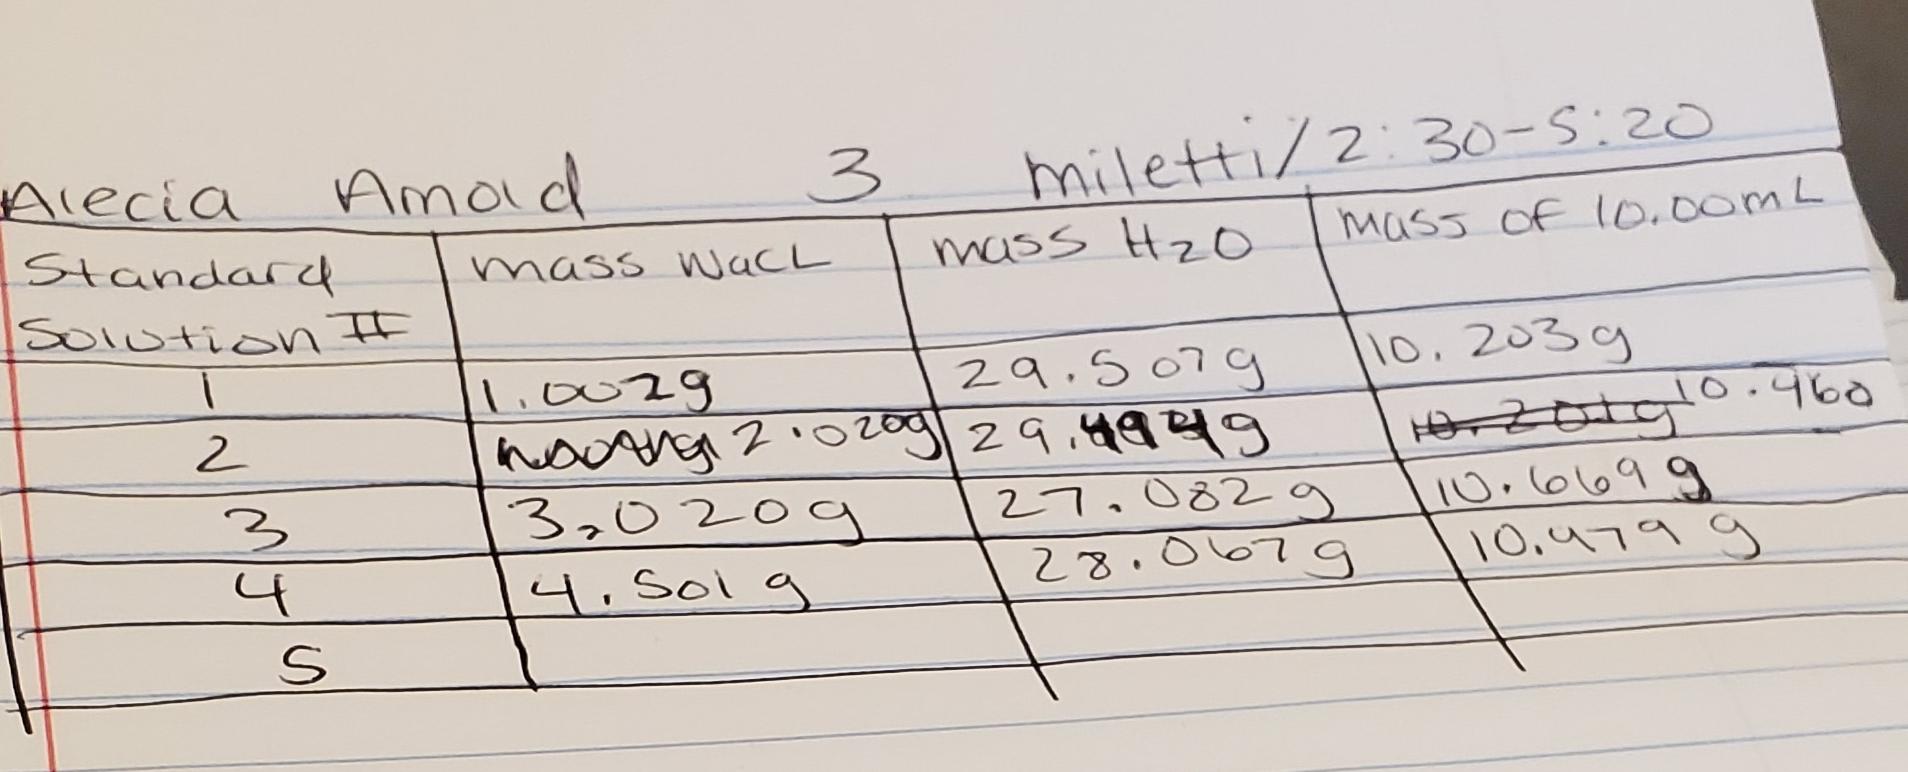 Alecia Arnold 3 miletti/2:30-5:20
Standard Solution II mass NaCL mass H2O mass of 10.00mL
1 1.002g 29.507g 10.203g
2 2.020g 29.494g 10.201g 10.460
3 3.020g 27.082g 10.669g
4 4.501g 28.067g 10.979g
5